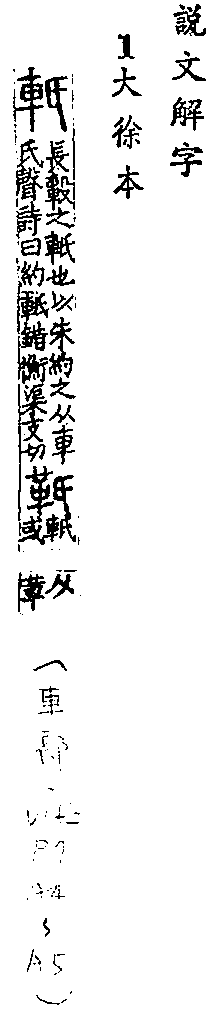 説文解字
1大徐本
軝
長轂之軝也以朱約之从車
氏聲詩曰約軝錯衡渠支切
軝或
从革
（車部・
A5）